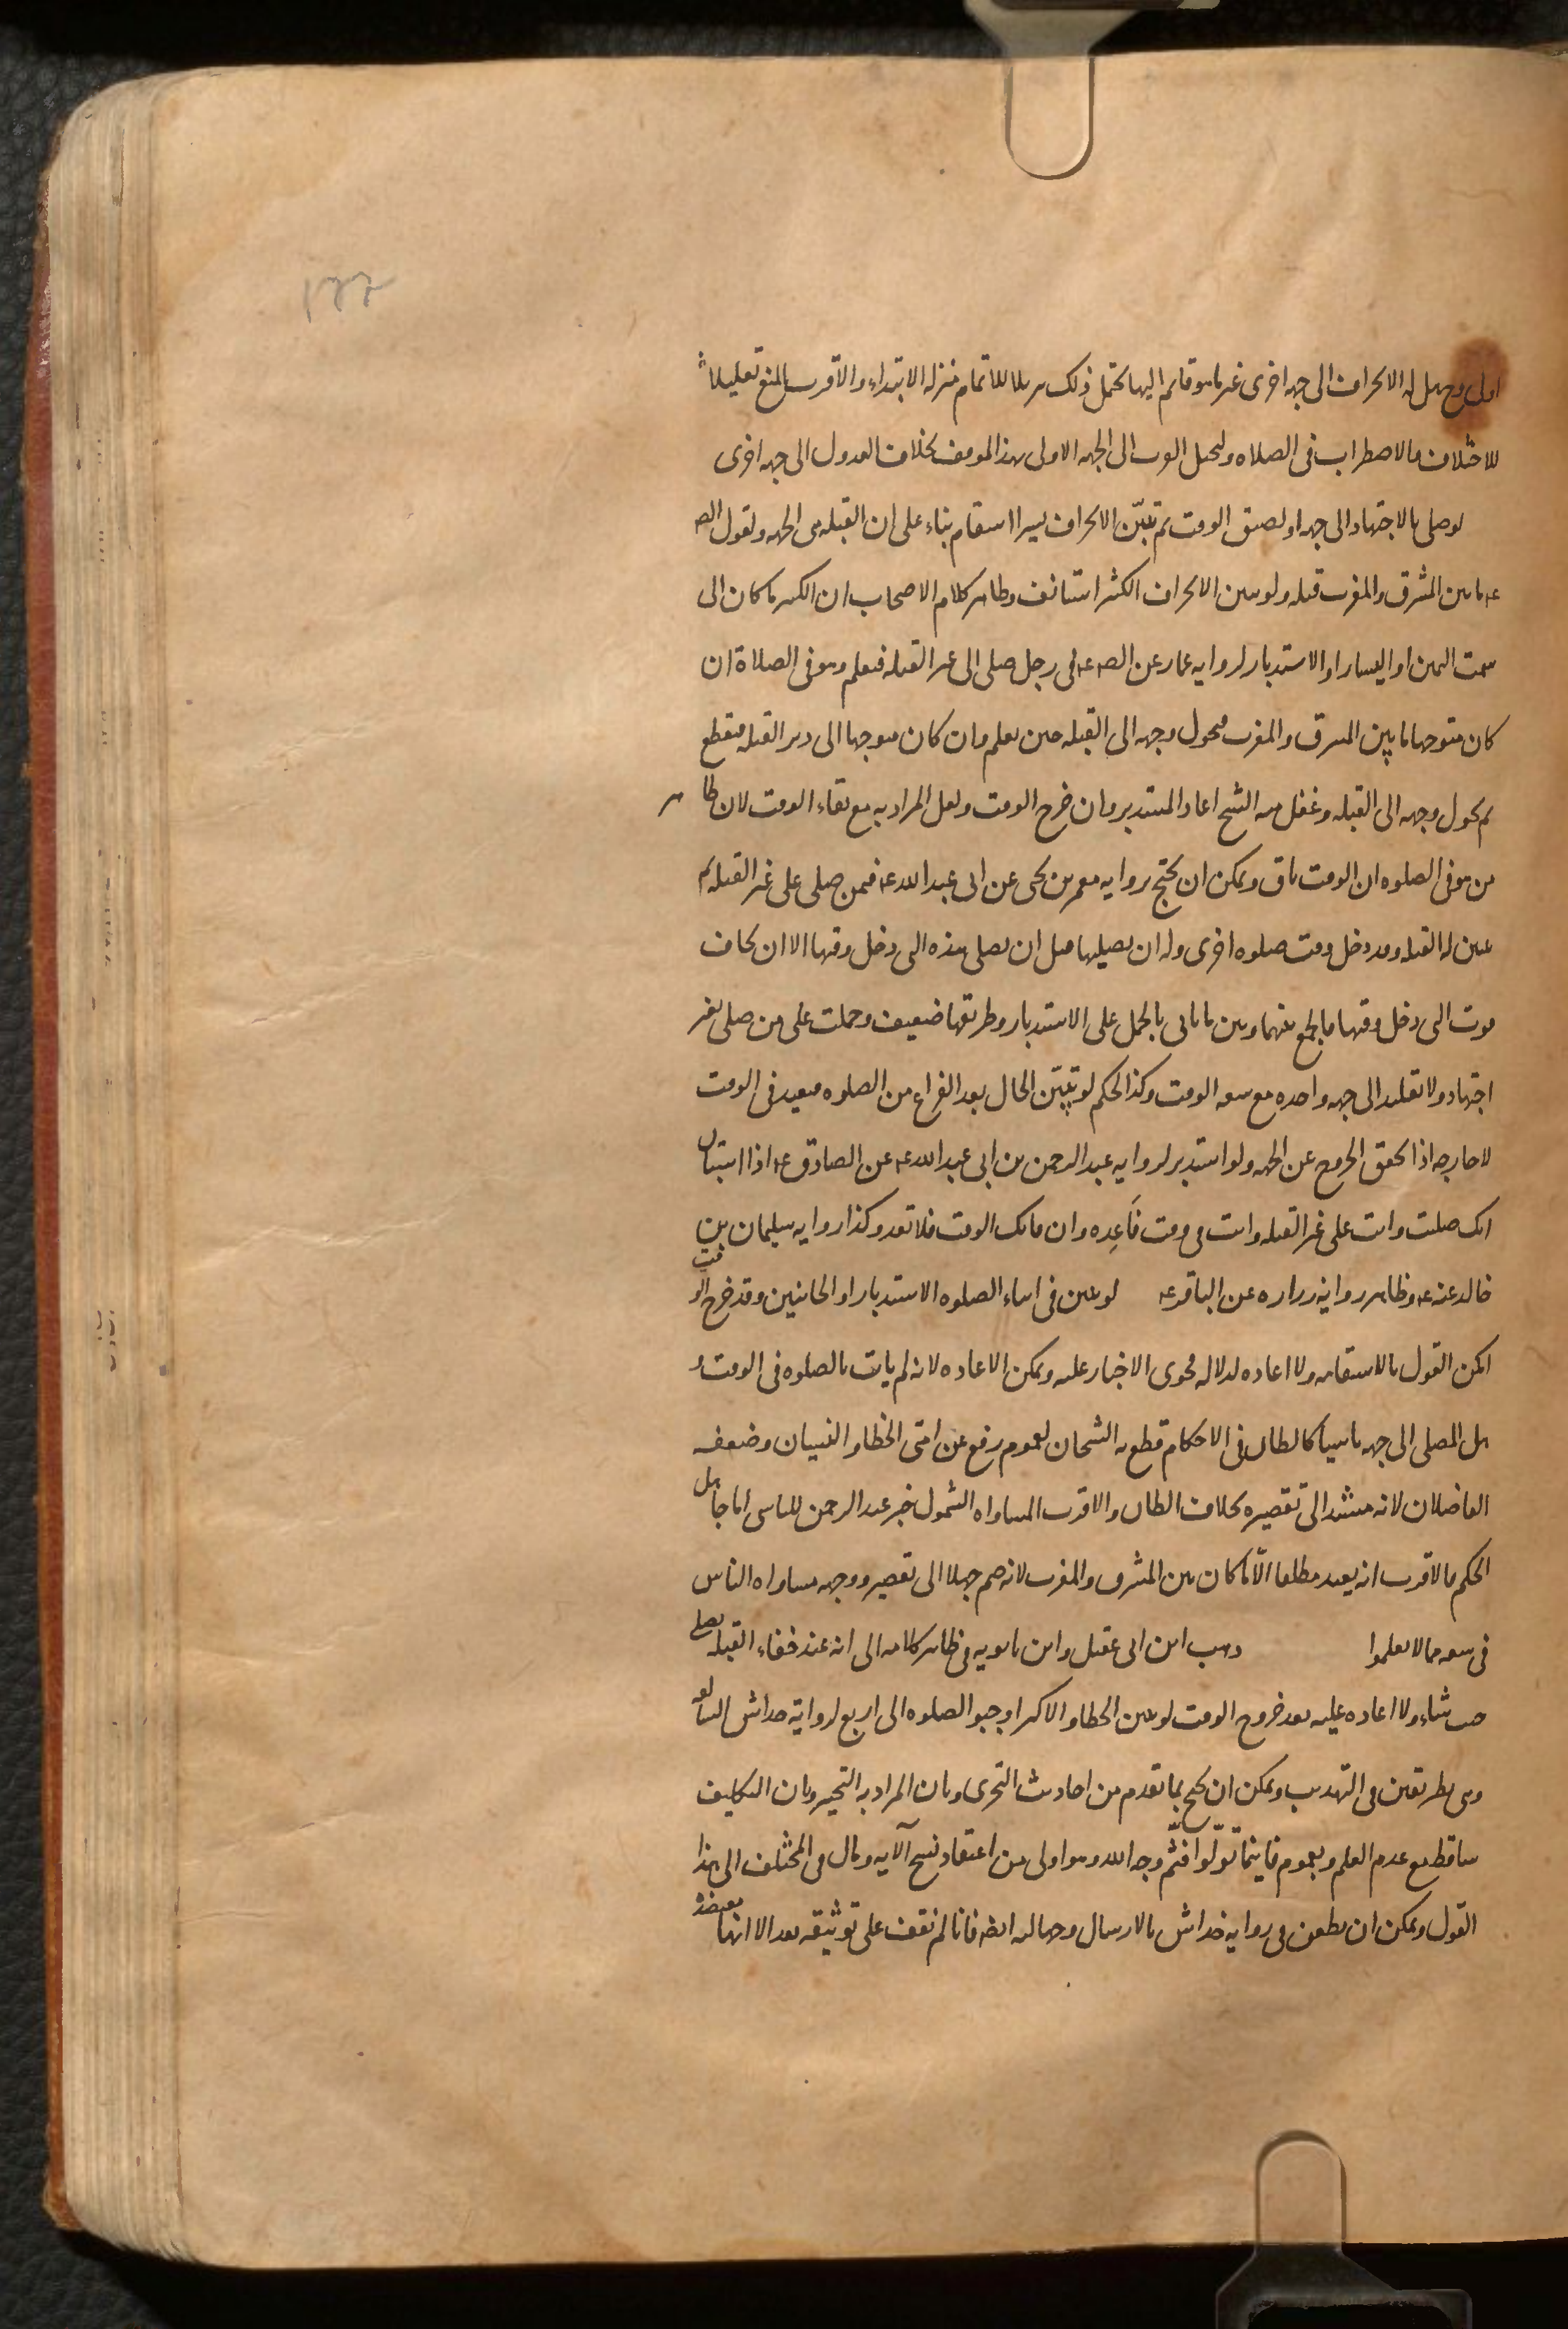 ١٢٢
اولى وح هل له الانحراف الى جهه اخرى غير ما هو قائم اليها يحتمل ذلك تنزيلا للاتمام منزله الابتداء والاقرب المنع تعليلا
للاختلاف والاضطراب في الصلاه وليحمل القرب الى الجهه الاولى بهذا الموقف بخلاف العدول الى جهه اخرى
لو صلى بالاجتهاد الى جهه او لضيق الوقت ثم تبيّن الانحراف يسيرا استقام بناء على ان القبله هي الجهه ولقول الص
عه ما بين المشرق والمغرب قبله ولو تبين الانحراف الكثير استانف وظاهر كلام الاصحاب ان الكثير ما كان الى
سمت اليمين او اليسار او الاستدبار لروايه عمار عن الص عه في رجل صلى الى غير القبله فيعلم وهو في الصلاة ان
كان متوجها ما بين المشرق والمغرب فيحول وجهه الى القبله حين يعلم وان كان متوجها الى دبر القبله فيقطع
ثم يحول وجهه الى القبله و نقل منه الشيخ اعاد المستدبر وان خرج الوقت ولعل المراد به مع بقاء الوقت لان ظاهر
من هو في الصلوه ان الوقت باق ويمكن ان يحتج بروايه معمر بن يحيى عن ابي عبد الله عه فيمن صلى على غير القبله ثم
تبين له القبله وقد دخل وقت صلوه اخرى وله ان يصليها قبل ان يصلي هذه التي دخل وقتها الا ان يخاف
فوت التي دخل وقتها فالجمع بينهما وبين ما ياتي بالحمل على الاستدبار وطريقها ضعيف وحملت على من صلى بغير
اجتهاد ولا تقليد الى جهه واحده مع سعه الوقت وكذا الحكم لو تبيّن الحال بعد الفراغ من الصلوه فيعيد في الوقت
لا خارجه اذا تحقق الخروج عن الجهه ولو استدبر لروايه عبد الرحمن بن ابي عبد الله عه عن الصادق عه اذا استبان
انك صليت وانت على غير القبله وانت في وقت فَاَعِده وان فاتك الوقت فلا تعد وكذا روايه سليمان بن
خالد عنه عه وظاهر روايه زراره عن الباقر عه لو تبين في اثناء الصلوه الاستدبار او الجانبين وقد خرج الوقت
امكن القول بالاستقامه ولا اعاده لدلاله فحوى الاخبار عليه ويمكن الاعاده لانه لم يات بالصلوه في الوقت و
هل المصلي الى جهه ناسيا كالظان في الاحكام قطع به الشيخان لعموم رفع عن امتي الخطا والنسيان وضعفه
الفاضلان لانه مستند الى تقصيره بخلاف الظان والاقرب المساواه لشمول خبر عبد الرحمن للناسي اما جاهل
الحكم فالاقرب انه يعيد مطلقا الّا ما كان بين المشرق والمغرب لانه ضم جهلا الى تقصير ووجهه مساواه الناس
في سعه مما لا يعلموا ذهب ابن ابي عقيل وابن بابويه في ظاهر كلامه الى انه عند خفاء القبله يصلي
حيث شاء ولا اعاده عليه بعد خروج الوقت لو تبين الخطا والاكثر اوجبو الصلوه الى اربع لروايه خداش السالفه
وهي بطريقين في التهذيب ويمكن ان يحتج بما تقدم من احاديث التحري وبان المراد به التخيير وبان التكليف
ساقط مع عدم العلم وبعموم فاينما تولّوا فثمّ وجه الله وهو اولى من اعتقاد نسخ الآيه ومال في المختلف الى هذا
القول ويمكن ان يطعن في روايه خداش بالارسال وجهاله ايضا فانا لم نقف على توثيقه بعد الا انها معتضده